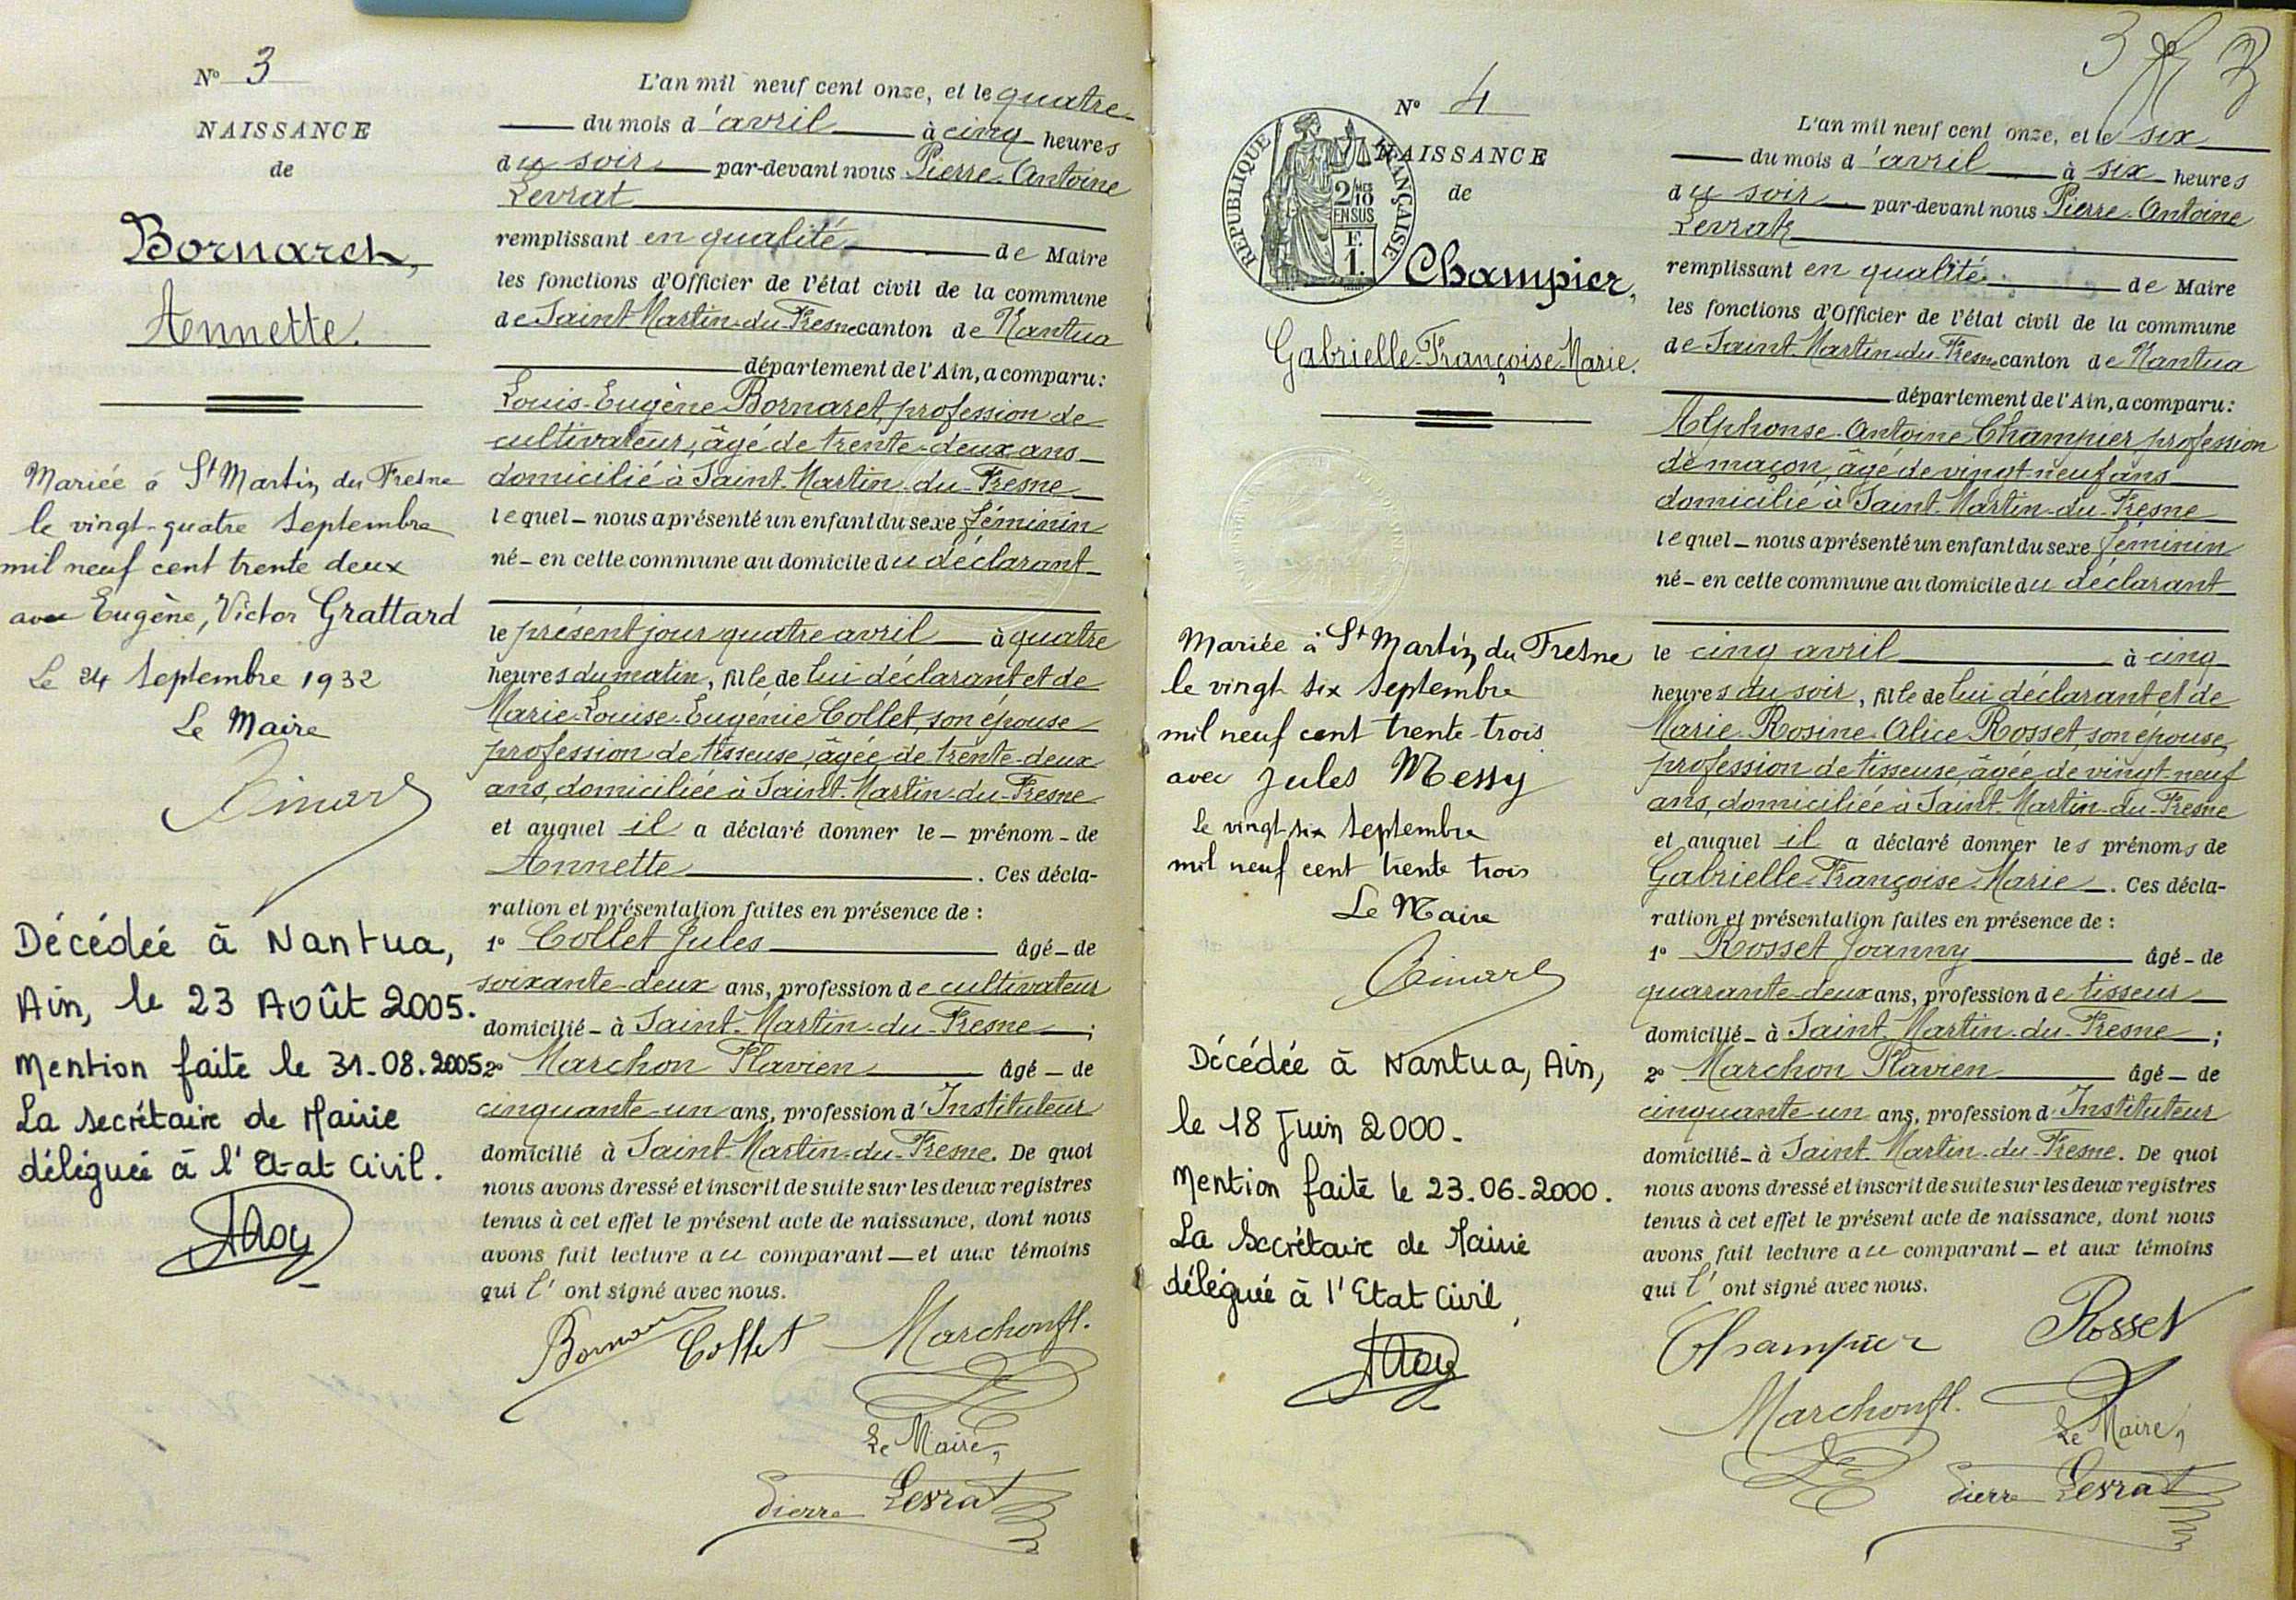 N° 3
NAISSANCE
de
Bornaret,
Annette.
Mariée à St Martin du Fresne
le vingt-quatre Septembre
mil neuf cent trente deux
avec Eugène, Victor Grattard
Le 24 Septembre 1932
Le Maire
Décédée à Nantua,
Ain, le 23 Août 2005.
Mention faite le 31.08.2005
La secrétaire de Mairie
déléguée à l'Etat Civil.
L'an mil neuf cent onze, et le quatre
du mois d'avril à cinq heures
du soir par-devant nous Pierre-Antoine
Levrat
remplissant en qualité de Maire
les fonctions d'Officier de l'état civil de la commune
de Saint-Martin-du-Fresne canton de Nantua
département de l'Ain, a comparu:
Louis-Eugène Bornaret, profession de
cultivateur, âgé de trente-deux ans
domicilié à Saint-Martin-du-Fresne
lequel - nous a présenté un enfant du sexe féminin
né - en cette commune au domicile du déclarant
le présent jour quatre avril à quatre
heures du matin, fille de lui déclarant et de
Marie-Louise-Eugénie Collet, son épouse
profession de tisseuse, âgée de trente-deux
ans, domiciliée à Saint-Martin-du-Fresne
et auquel il a déclaré donner le - prénom - de
Annette. Ces décla-
ration et présentation faites en présence de :
1° Collet Jules âgé - de
soixante-deux ans, profession de cultivateur
domicilié - à Saint-Martin-du-Fresne ;
2° Marchon Flavien âgé - de
cinquante-un ans, profession d'Instituteur
domicilié à Saint-Martin-du-Fresne. De quoi
nous avons dressé et inscrit de suite sur les deux registres
tenus à cet effet le présent acte de naissance, dont nous
avons fait lecture au comparant - et aux témoins
qui l'ont signé avec nous.
Collet Marchon fl.
Le Maire,
Pierre Levrat
3
N° 4
NAISSANCE
de
REPUBLIQUE FRANÇAISE
2/10
EN SUS
F.
1.
Champier,
Gabrielle-Françoise-Marie.
Mariée à St Martin du Fresne
le vingt six Septembre
mil neuf cent trente-trois
avec Jules Messy
le vingt-six Septembre
mil neuf cent trente trois
Le Maire
Décédée à Nantua, Ain,
le 18 Juin 2000.
Mention faite le 23.06.2000.
La Secrétaire de Mairie
déléguée à l'Etat Civil
L'an mil neuf cent onze, et le six
du mois d'avril à six heures
du soir par-devant nous Pierre-Antoine
Levrat
remplissant en qualité de Maire
les fonctions d'Officier de l'état civil de la commune
de Saint-Martin-du-Fresne canton de Nantua
département de l'Ain, a comparu:
Alphonse-Antoine Champier, profession
de maçon, âgé de vingt-neuf ans
domicilié à Saint-Martin-du-Fresne
lequel - nous a présenté un enfant du sexe féminin
né - en cette commune au domicile du déclarant
le cinq avril à cinq
heures du soir, fille de lui déclarant et de
Marie-Rosine-Alice Rosset, son épouse,
profession de tisseuse, âgée de vingt-neuf
ans, domiciliée à Saint-Martin-du-Fresne
et auquel il a déclaré donner les prénoms de
Gabrielle-Françoise-Marie. Ces décla-
ration et présentation faites en présence de :
1° Rosset Joanny âgé - de
quarante-deux ans, profession de tisseur
domicilié - à Saint-Martin-du-Fresne ;
2° Marchon Flavien âgé - de
cinquante-un ans, profession d'Instituteur
domicilié - à Saint-Martin-du-Fresne. De quoi
nous avons dressé et inscrit de suite sur les deux registres
tenus à cet effet le présent acte de naissance, dont nous
avons fait lecture au comparant - et aux témoins
qui l'ont signé avec nous.
Champier Rosset
Marchon fl.
Le Maire,
Pierre Levrat